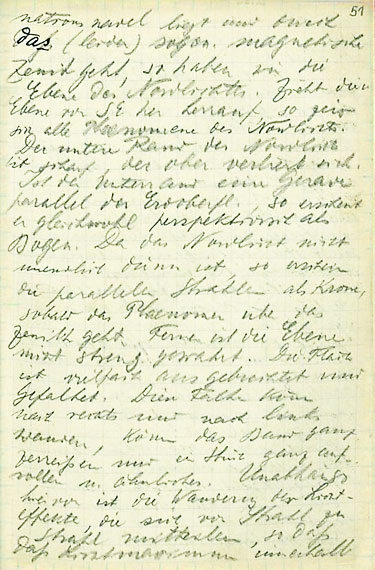 51
nationsnadel liegt und durch
das (leider) sogen. magnetische
Zenit geht, so haben wir die
Ebene des Nordlichts. Zieht diese
Ebene von SE her herauf so zeigt
sie alle Phaenomene des Nordlichts.
Der untere Rand des Nordlichts
ist scharf der obere verliert sich.
Ist der Unterrand eine Gerade
parallel der Erdoberfl., so erscheint
er gleichwohl perspektivisch als
Bogen. Da das Nordlicht nicht
unendlich dünn ist, so erscheinen
die parallelen Strahlen als Krone,
sobald das Phaenomen über das
Zenith geht. Ferner ist die Ebene
nicht streng gewahrt. Die Fläche
ist vielfach ausgebuchtet und
gefaltet. Diese Falten können
nach rechts und nach links
wandern, können das Band ganz
zerreißen und ein Stück ganz auf-
rollen u. ähnliches. Unabhängig
hiervon ist die Wandern der Licht-
effekte, die sich von Strahl zu
Strahl mitteilen, so daß
das Lichtmaximum innerhalb